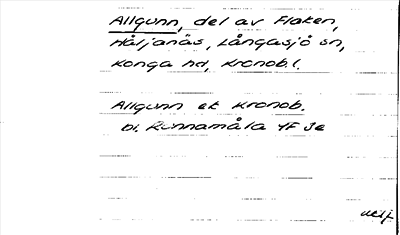 Allgunn, del av Flaken,
Håljanäs, Långasjö sn,
Konga hd, Kronob.l.
Allgunn et Kronob.
bl. Runnamåla 4F 3e